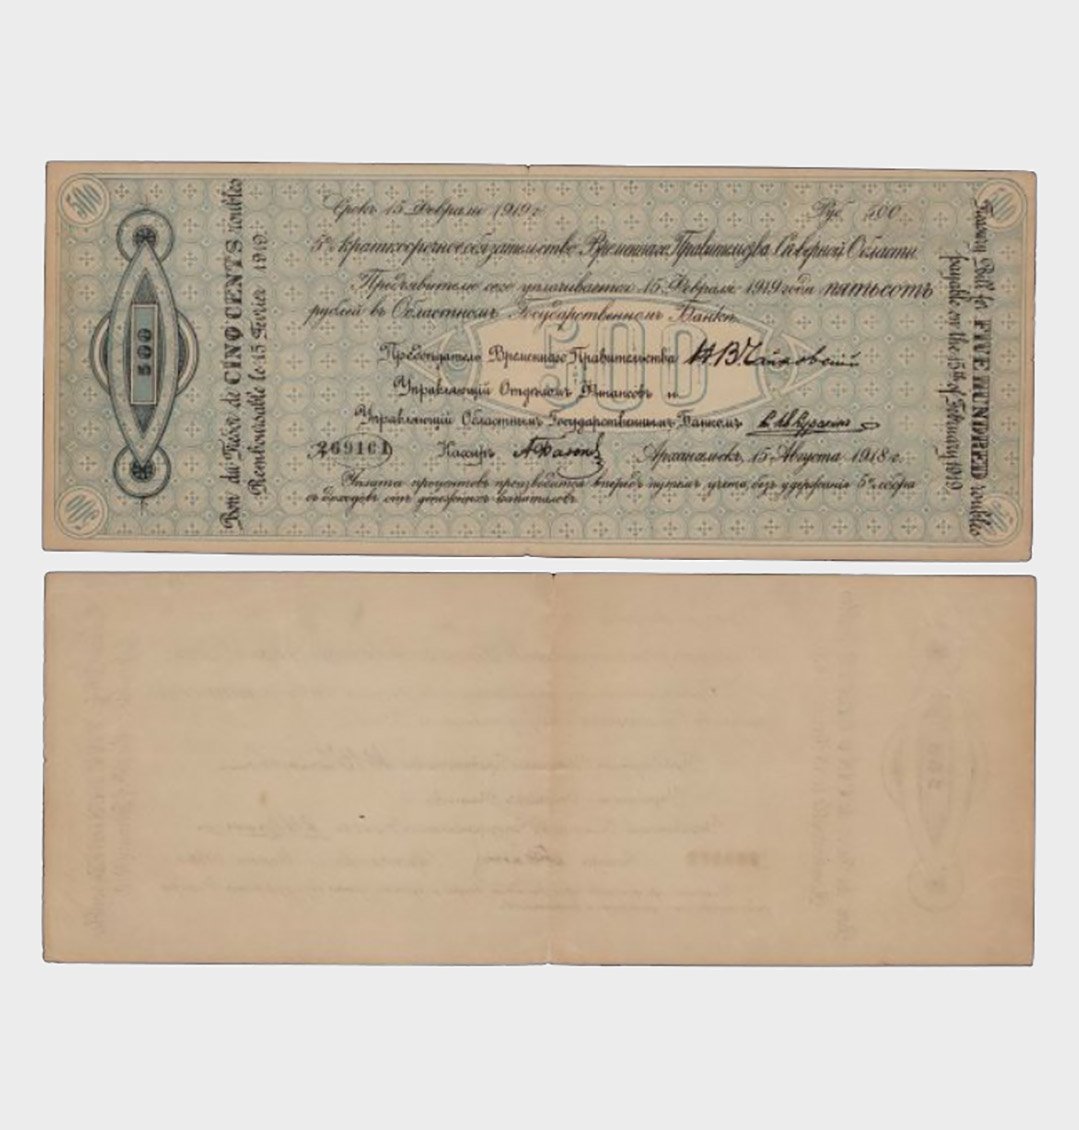 500
Bon du Trésor de CINQ CENTS roubles
Remboursable le 15 Février 1919.
500
Срокъ 15 Февраля 1919 г.
Руб. 500
5% краткосрочное обязательство Временнаго Правительства Сѣверной Области
Предъявителю сего уплачивается 15 Февраля 1919 года пятьсотъ
рублей въ Областномъ Государственномъ Банкѣ.
500
Предсѣдатель Временнаго Правительства Н.В.Чайковскій
Управляющій Отдѣломъ Финансовъ и
Управляющій Областнымъ Государственнымъ Банкомъ
269161
Кассиръ
Архангельскъ, 15 Августа 1918 г.
Уплата процентовъ производится впередъ путемъ учета, безъ удержанія 5% сбора
съ доходовъ отъ денежныхъ капиталовъ.
Treasury Bill for FIVE HUNDRED roubles
payable on the 15th of February 1919.
500